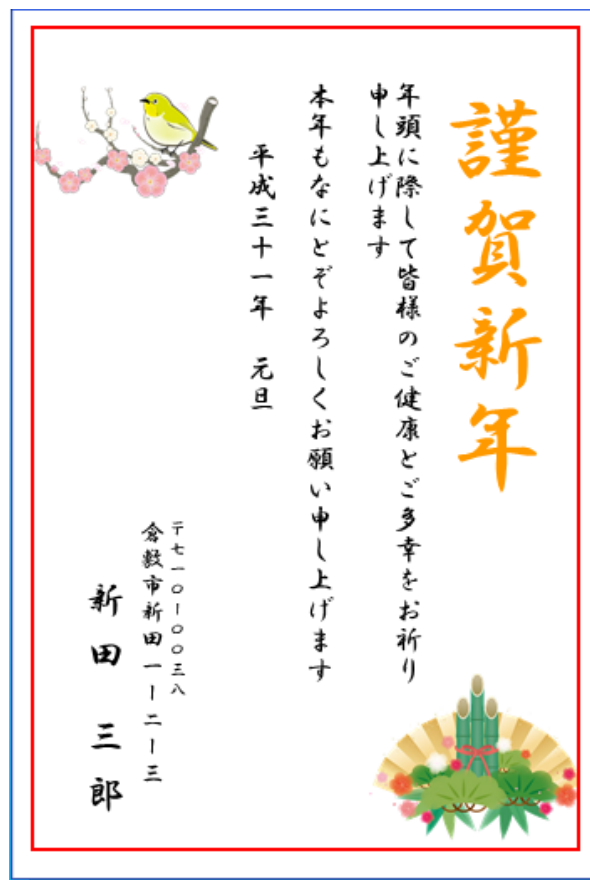 謹賀新年
年頭に際して皆様のご健康とご多幸をお祈り
申し上げます
本年もなにとぞよろしくお願い申し上げます
平成三十一年　元旦
〒七一〇ー〇〇三八
倉敷市新田一ー二ー三
新田　三郎